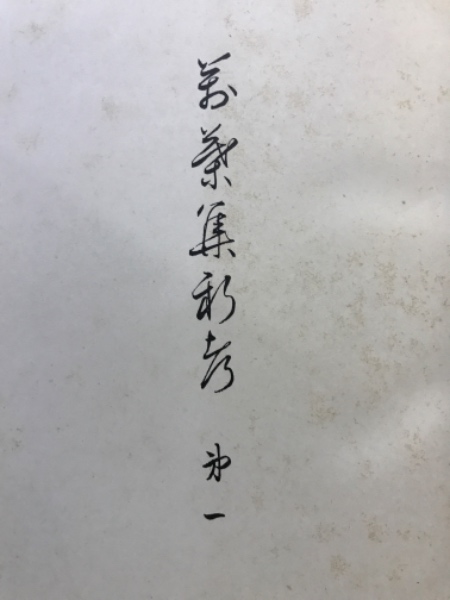 萬葉集新考 第一